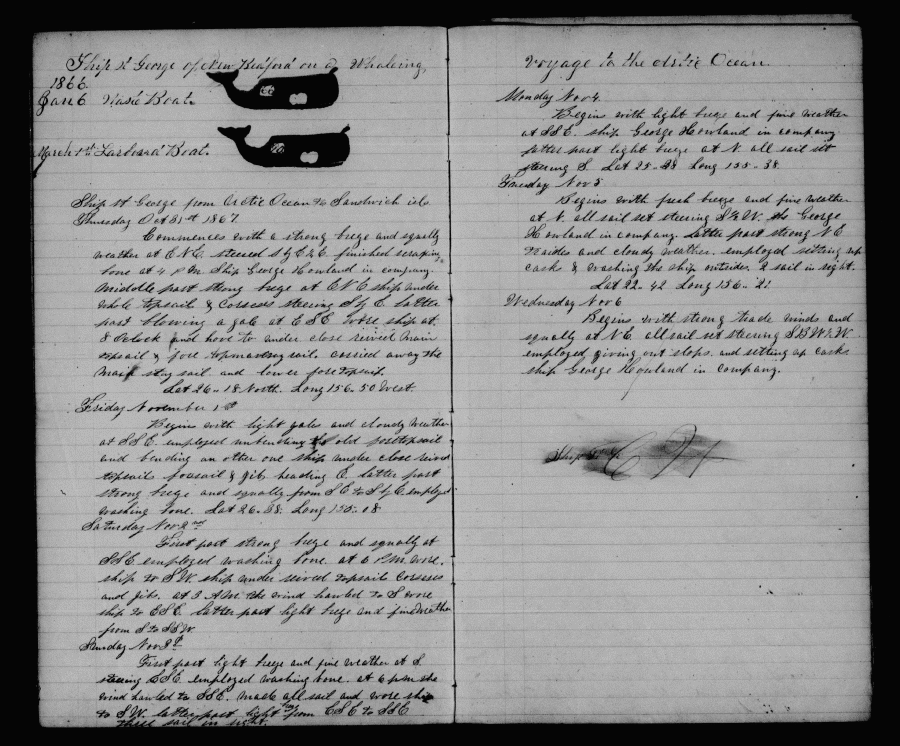 Ship St George of New Bedford on a Whaleing
1866
Jan 6 Waste Boat.
March 1st Larboard Boat.
Ship St George from Arctic Ocean to Sandwich isls
Thursday Oct 31st 1867
Commences with a strong breze and squally
weather at ENE. steered S by E & E finished scraping
bone at 4 P M. Ship George Howland in company.
Middle part strong breze at ENE ship under
whole topsails & corses steering S by E latter
part blowing a gale at ESE wore ship at
8 Oclock and hove to under close reived main
topsail & fore topmast stay sail. carried away the
main stay sail and lower foretopsail.
Lat 26-18 North. Long 156-50 West.
Friday November 1st
Begins with light gales and cloudy weather
at SSE. employed unbending old foretopsail
and bending an other one ship under close reived
topsails foresail & jib, heading E. latter part
strong breze and squally from SE to S by E employed
washing bone. Lat 26-38. Long 155-08
Saturday Nov 2nd
First part strong breze and squally at
SSE employed washing bone. at 6 PM wore
ship to SW. ship under reived topsails corses
and jibs. at 3 AM the wind hawled to S wore
ship to ESE. latter part light breze and fine weather
from S to SSW.
Sunday Nov 3d
First part light breze and fine weather at S.
steering ESE. employed washing bone. at 6 pm the
wind hawled to SSE. made all sail and wore ship
to SW. latter part light from ESE to SSE
three sail in sight.
Voyage to the Arctic Ocean.
Monday Nov 4.
Begins with light breze and fine weather
at SSE. ship George Howland in company
latter part light breze at N. all sail set
steering S. Lat 25-28 Long 155-38.
Tuesday Nov 5
Begins with fresh breze and fine weather
at N. all sail set steering S & W. the George
Howland in company. latter part strong NE
traides and cloudy weather. employed setting up
casks & washing the ship outsides. 2 sail in sight.
Lat 22-42 Long 156-21
Wednesday Nov 6
Begins with strong trade winds and
squally at NE all sail set steering SBW & W.
employed giving out slops. and setting up casks
ship George Howland in company.
Ship St G